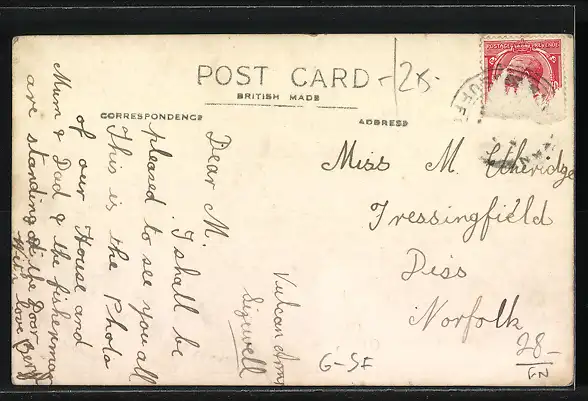 POST CARD
BRITISH MADE
CORRESPONDENCE
ADDRESS
-/28-
POSTAGE
REVENUE
Miss M. Etheridge
Fressingfield
Diss
Norfolk
Vulcan Arms
Sizewell
Dear M.
I shall be
pleased to see you all
This is the Photo
of our House and
Mum & Dad & the fisherman
are standing at the Door
With love
G-SF
28-